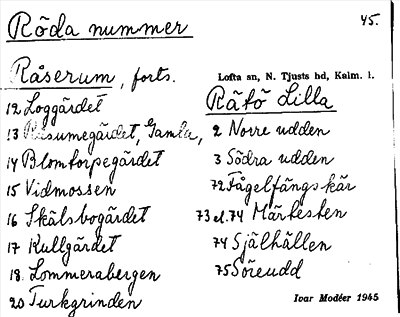 Röda nummer
45.
Råserum, forts.
12 Loggärdet
13 Råsumegärdet, Gamla,
14 Blomtorpegärdet
15 Vidmossen
16 Skälsbogärdet
17 Kullgärdet
18. Lommerabergen
20 Turkgrinden
Lofta sn, N. Tjusts hd, Kalm. l.
Rätö Lilla
2 Norre udden
3 Södra udden
72 Fågelfängskär
73 el. 74 Märkesten
74 Själhällen
75 Söreudd
Ivar Modéer 1945